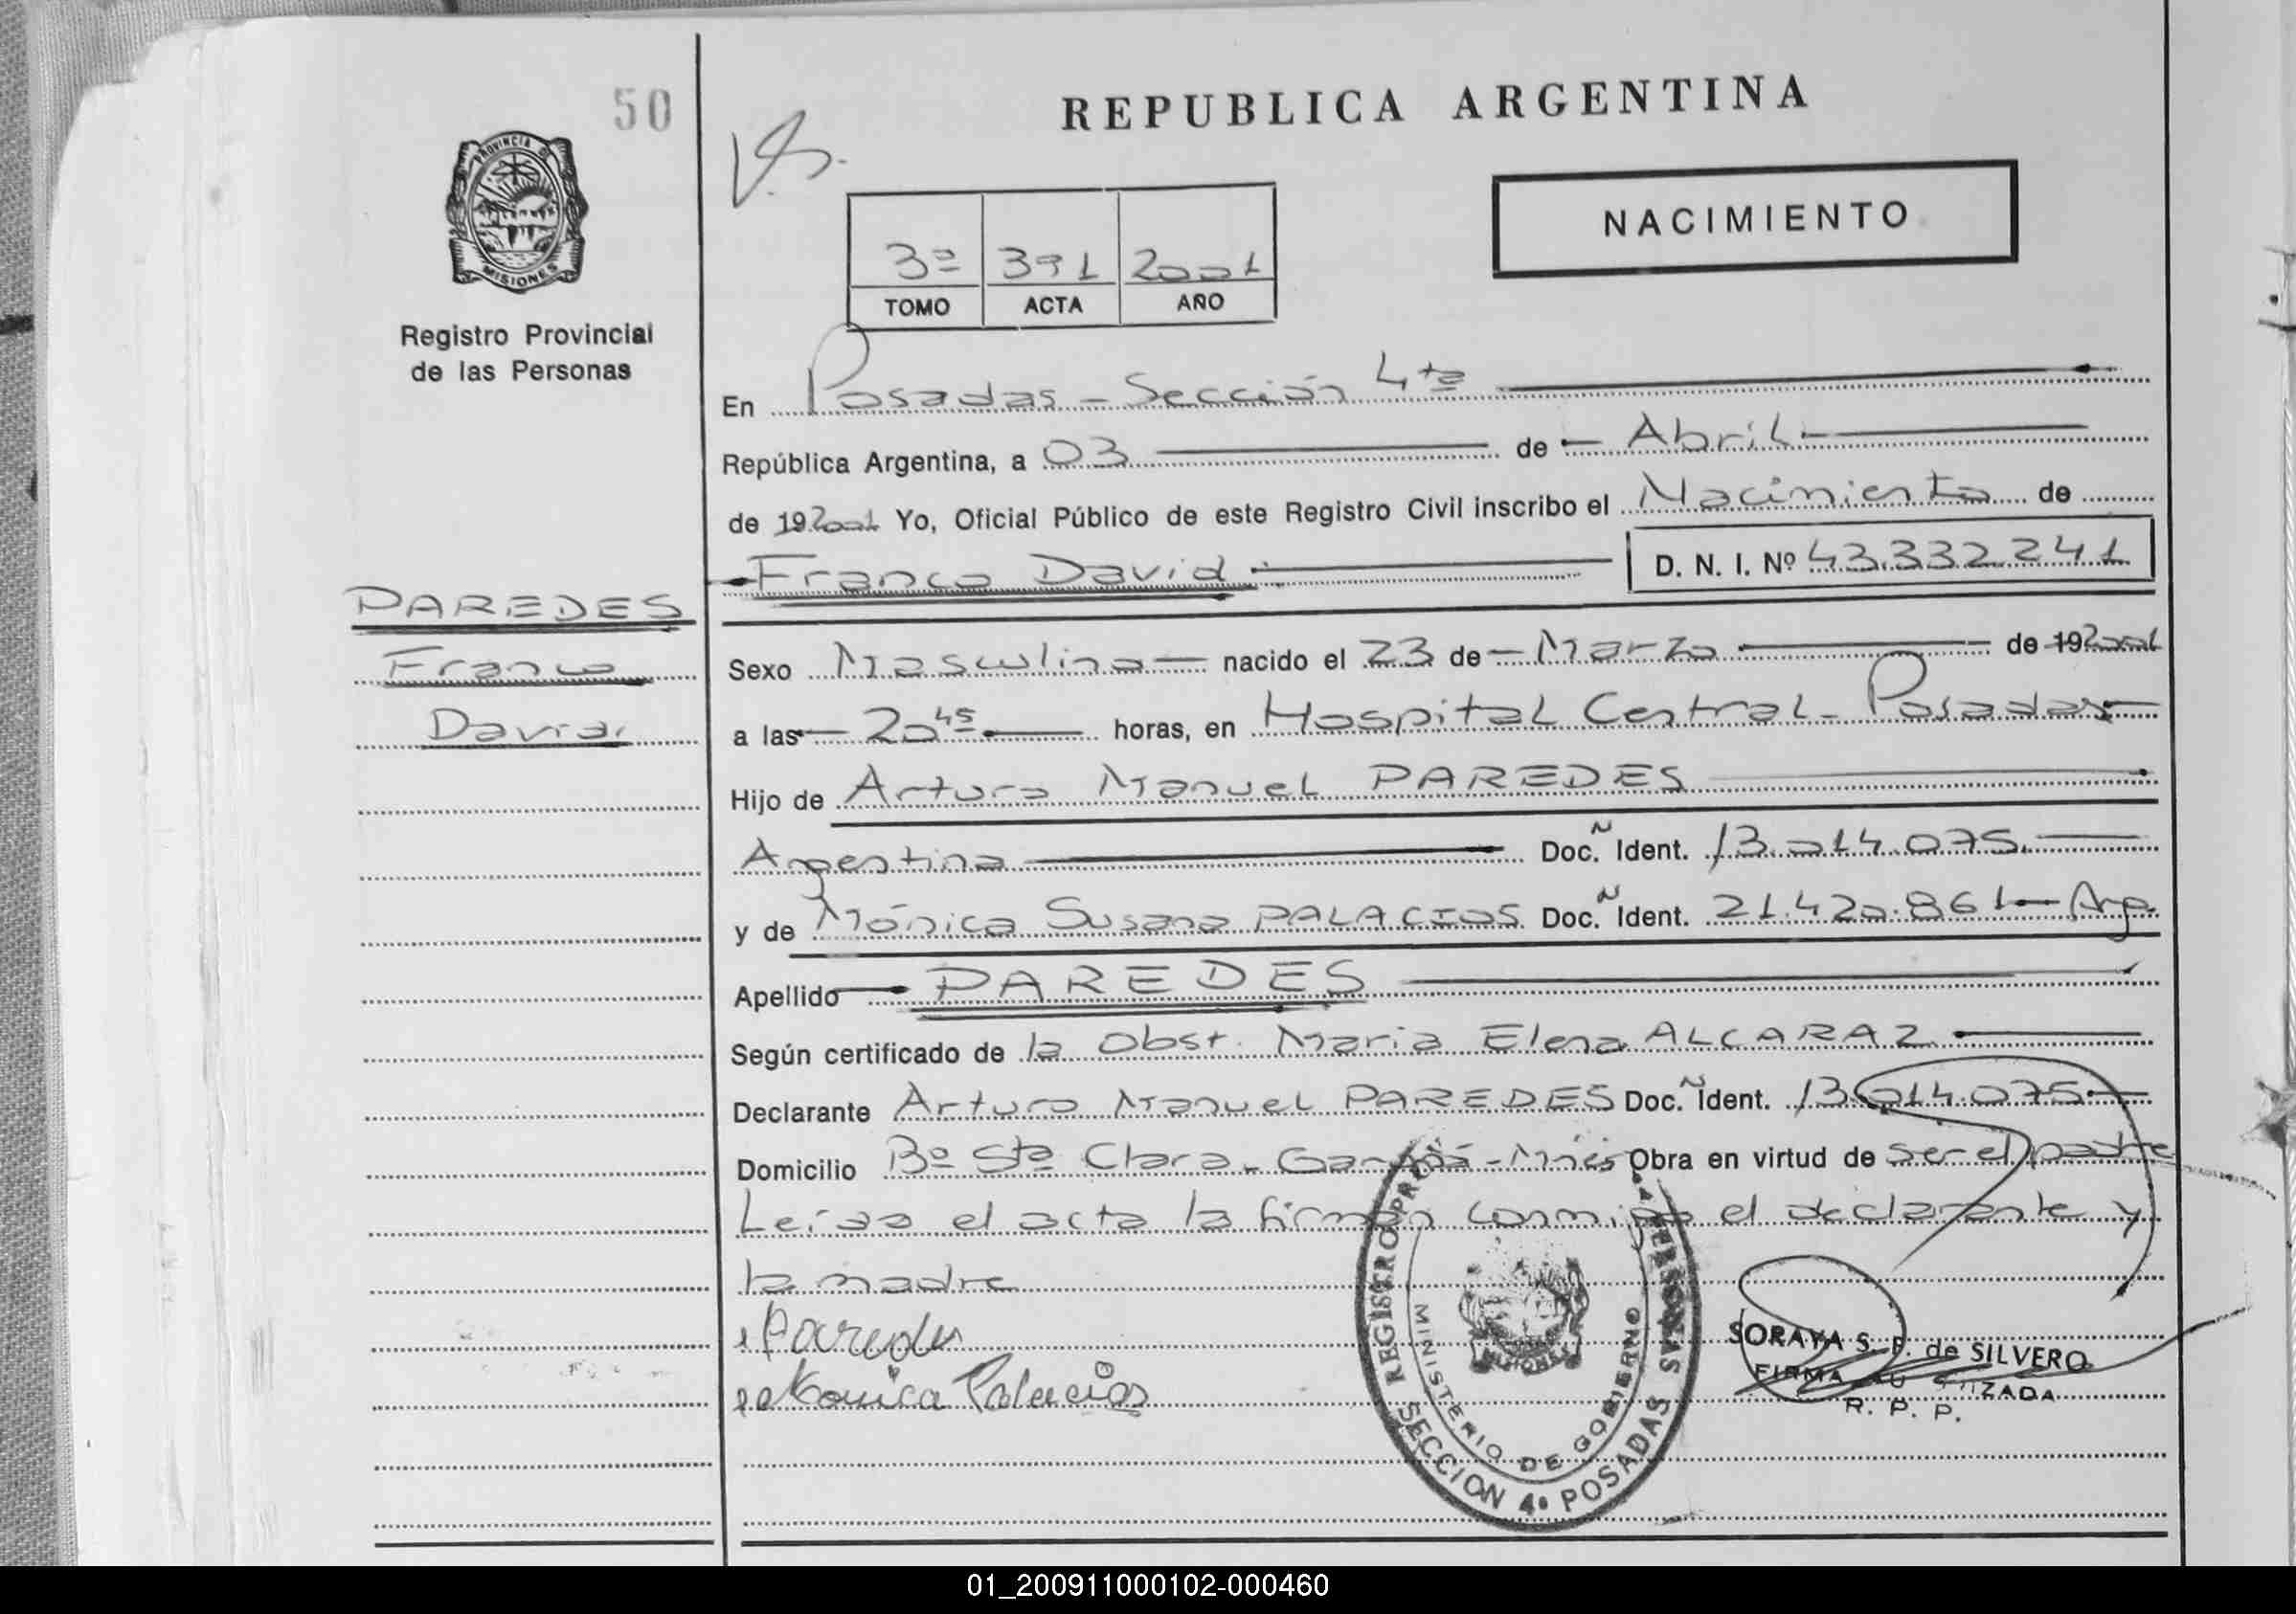 50
REPUBLICA ARGENTINA
PROVINCIA DE
MISIONES
NACIMIENTO
3º 391 2001
TOMO ACTA AÑO
Registro Provincial
de las Personas
En Posadas - Sección 4ta
República Argentina, a 03 de Abril
de 192001 Yo, Oficial Público de este Registro Civil inscribo el Nacimiento de
Franco David D. N. I. Nº 43.332.241
PAREDES
Franco
David
Sexo Masculino nacido el 23 de Marzo de 192001
a las 20 45 horas, en Hospital Central - Posadas
Hijo de Arturo Manuel PAREDES
Argentino Doc. Ñ Ident. 13.014.075
y de Mónica Susana PALACIOS Doc. Ñ Ident. 21.420.861 - Arg.
Apellido PAREDES
Según certificado de la Obst. Maria Elena ALCARAZ
Declarante Arturo Manuel PAREDES Doc. Ñ Ident. 13.014.075
Domicilio Bº Sta Clara - Garupá - Mnes Obra en virtud de ser el padre
Leída el acta la firman conmigo el declarante y
la madre
Paredes
Monica Palacios
REGISTRO
MINISTERIO DE GOBIERNO
SECCION 4ª POSADAS
MISIONES
SORAYA S. F. de SILVERO
FIRMA AUTORIZADA
R. P. P.
01_200911000102-000460